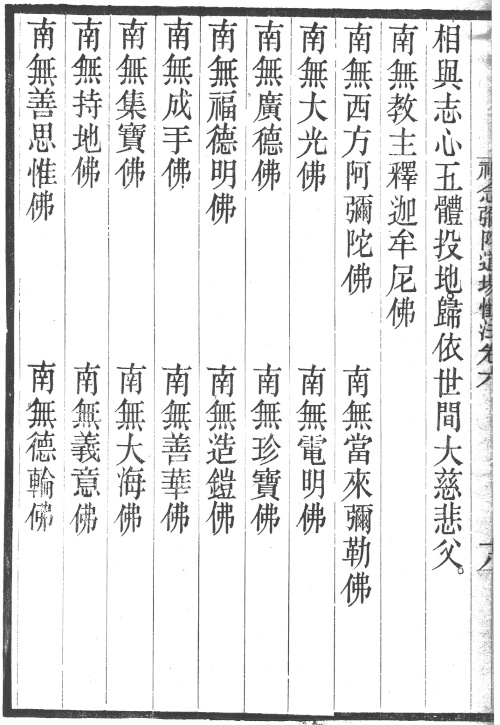 禮念彌陀道場懺法卷六
十八
相與志心五體投地。歸依世間大慈悲父。
南無教主釋迦牟尼佛
南無西方阿彌陀佛　南無當來彌勒佛
南無大光佛　南無電明佛
南無廣德佛　南無珍寶佛
南無福德明佛　南無造鎧佛
南無成手佛　南無善華佛
南無集寶佛　南無大海佛
南無持地佛　南無義意佛
南無善思惟佛　南無德輪佛